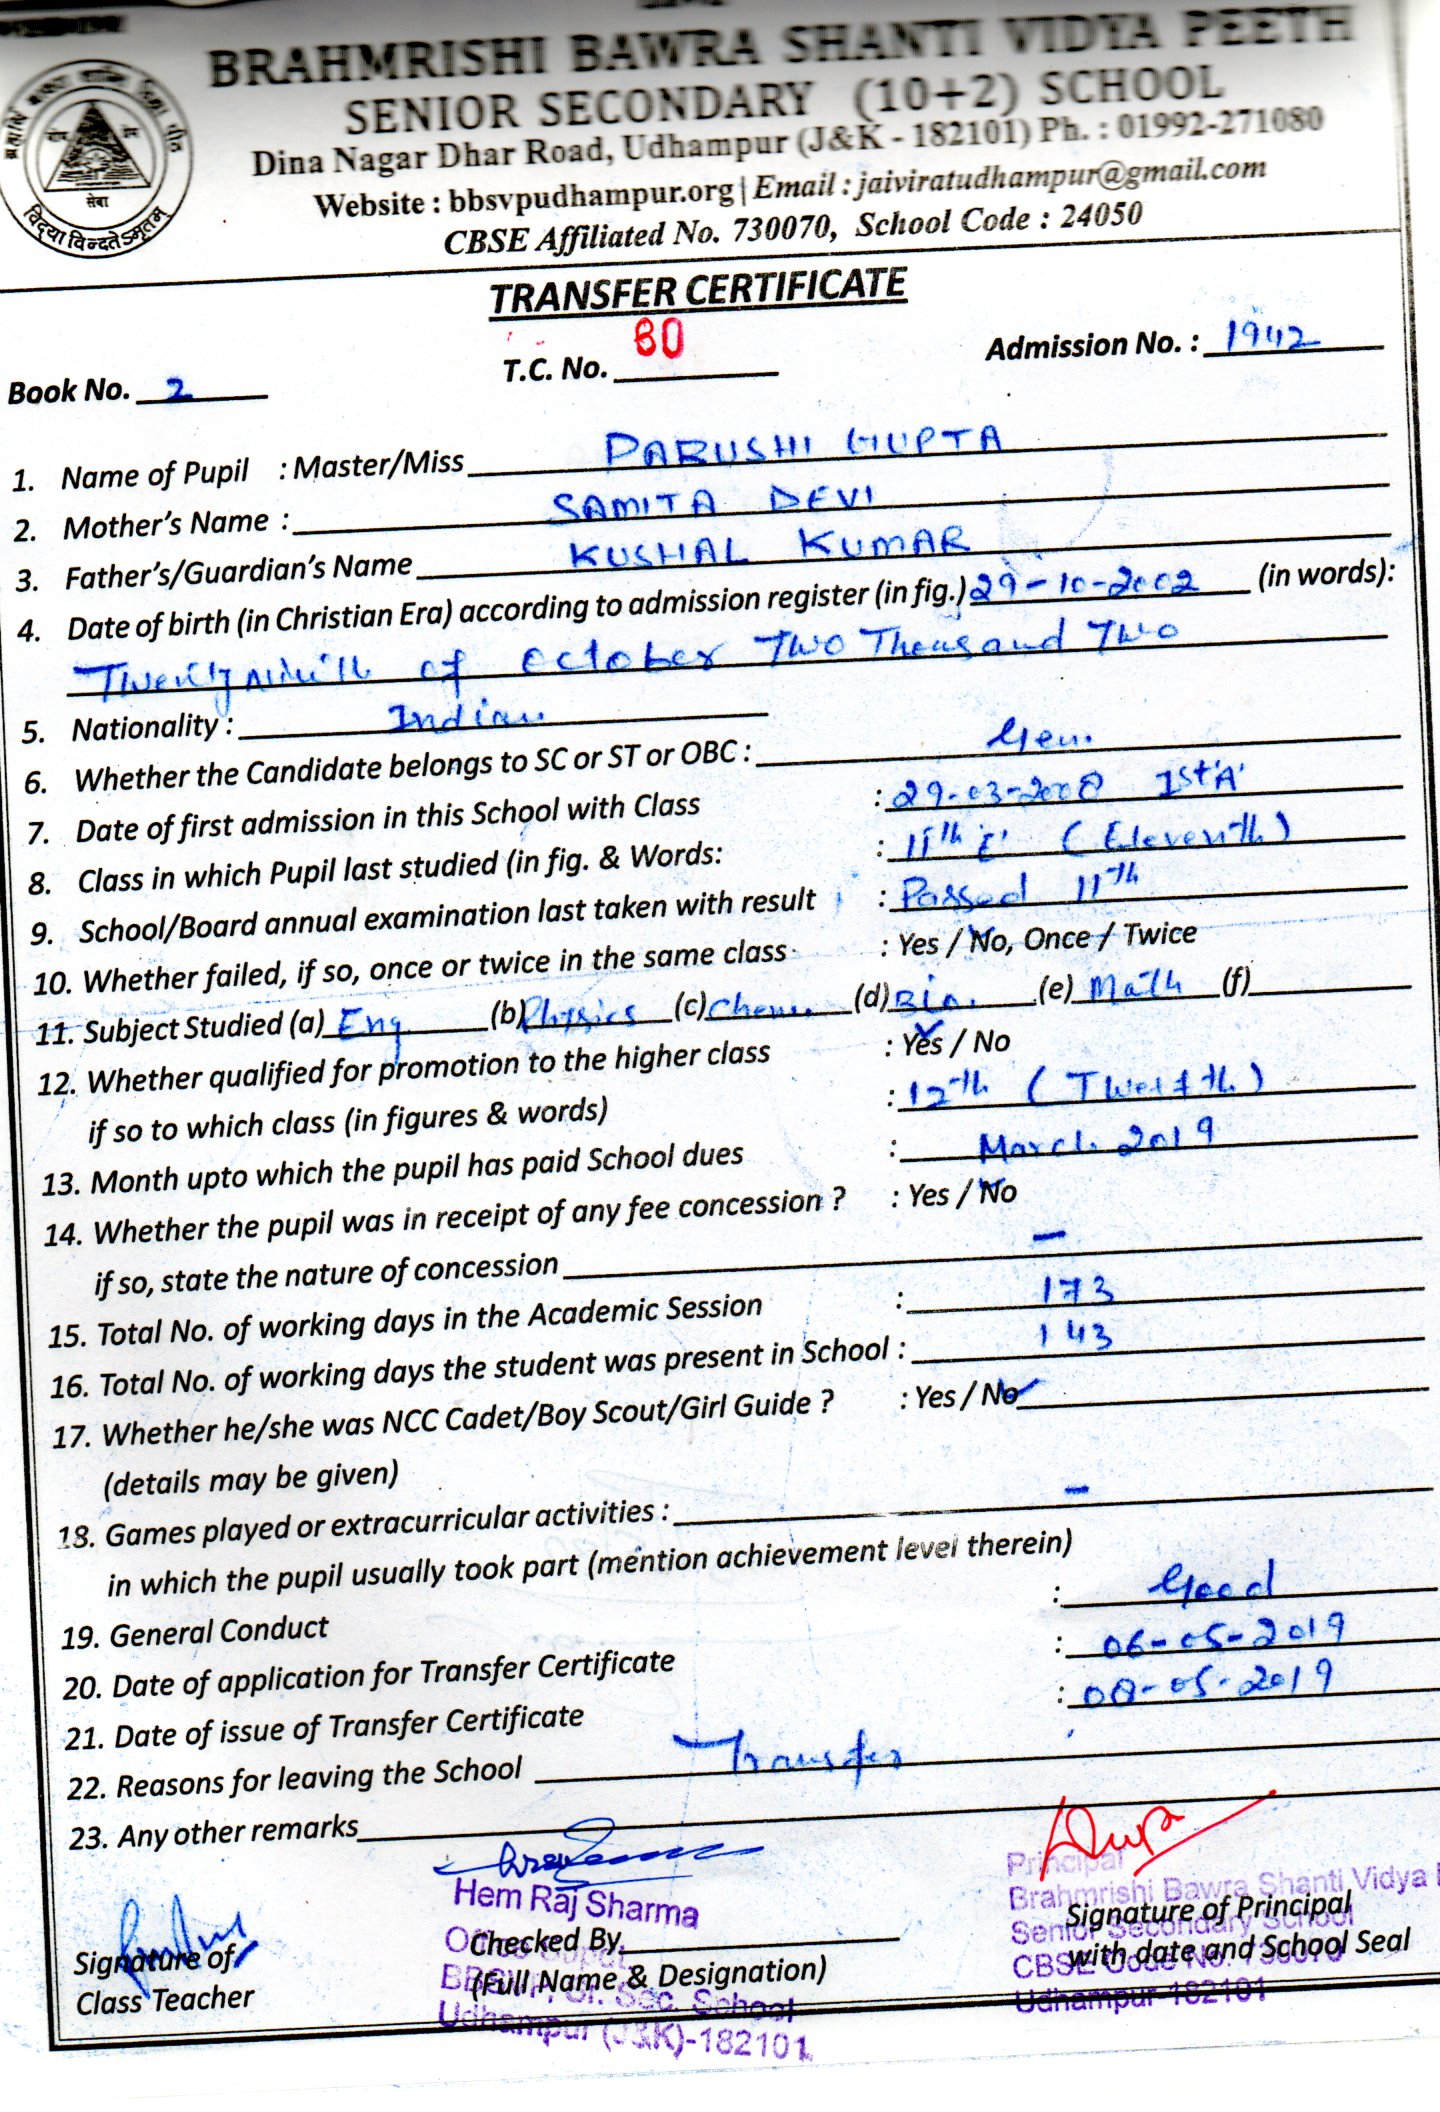 BRAHMRISHI BAWRA SHANTI VIDYA PEETH
SENIOR SECONDARY (10+2) SCHOOL
Dina Nagar Dhar Road, Udhampur (J&K - 182101) Ph. : 01992-271080
Website : bbsvpudhampur.org | Email : jaiviratudhampur@gmail.com
CBSE Affiliated No. 730070, School Code : 24050
सेवा
विद्यया विन्दतेऽमृतम्
TRANSFER CERTIFICATE
Book No. 2 T.C. No. 60 Admission No. : 1942
1. Name of Pupil : Master/Miss PARUSHI GUPTA
2. Mother's Name : SAMITA DEVI
3. Father's/Guardian's Name KUSHAL KUMAR
4. Date of birth (in Christian Era) according to admission register (in fig.) 29-10-2002 (in words):
Twentyninth of October Two Thousand Two
5. Nationality : Indian
6. Whether the Candidate belongs to SC or ST or OBC : Gen.
7. Date of first admission in this School with Class : 29-03-2008 Ist 'A'
8. Class in which Pupil last studied (in fig. & Words: : 11th 'E' (Eleventh)
9. School/Board annual examination last taken with result : Passed 11th
10. Whether failed, if so, once or twice in the same class : Yes / No, Once / Twice
11. Subject Studied (a) Eng. (b) Physics (c) Chem. (d) Bio. (e) Math (f)
12. Whether qualified for promotion to the higher class : Yes / No
if so to which class (in figures & words) : 12th (Twelfth)
13. Month upto which the pupil has paid School dues : March 2019
14. Whether the pupil was in receipt of any fee concession ? : Yes / No
if so, state the nature of concession –
15. Total No. of working days in the Academic Session : 173
16. Total No. of working days the student was present in School : 143
17. Whether he/she was NCC Cadet/Boy Scout/Girl Guide ? : Yes / No
(details may be given)
18. Games played or extracurricular activities : –
in which the pupil usually took part (mention achievement level therein)
19. General Conduct : Good
20. Date of application for Transfer Certificate : 06-05-2019
21. Date of issue of Transfer Certificate : 08-05-2019
22. Reasons for leaving the School Transfer
23. Any other remarks
Hem Raj Sharma
Principal
Brahmrishi Bawra Shanti Vidya
Senior Secondary School
CBSE Code No. 730070
Udhampur-182101
Signature of Principal
with date and School Seal
Checked By
(Full Name & Designation)
Sr. Sec. School
Udhampur (J&K)-182101
Signature of
Class Teacher